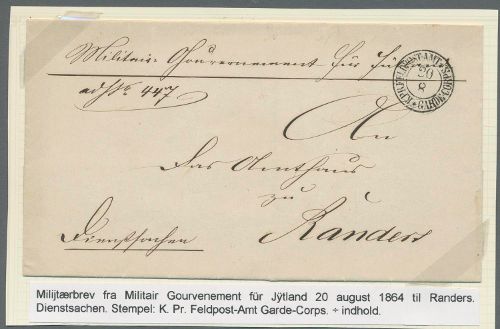 Militair-Gouvernement für Jütland
ad No 447
K.PR.FELDPOST-AMT GARDE-CORPS
20
8
An
das Amthaus
zu
Randers
Dienstsachen
Milijtærbrev fra Militair Gourvenement für Jÿtland 20 august 1864 til Randers.
Dienstsachen. Stempel: K. Pr. Feldpost-Amt Garde-Corps. ÷ indhold.